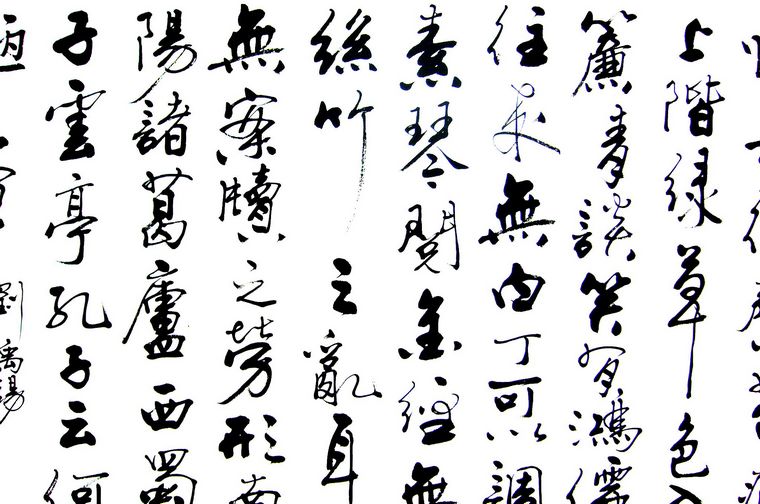 上階綠草色入
簾青談笑有鴻儒
往來無白丁可以調
素琴閱金經無
絲竹之亂耳
無案牘之勞形南
陽諸葛廬西蜀
子雲亭孔子云何
劉禹錫